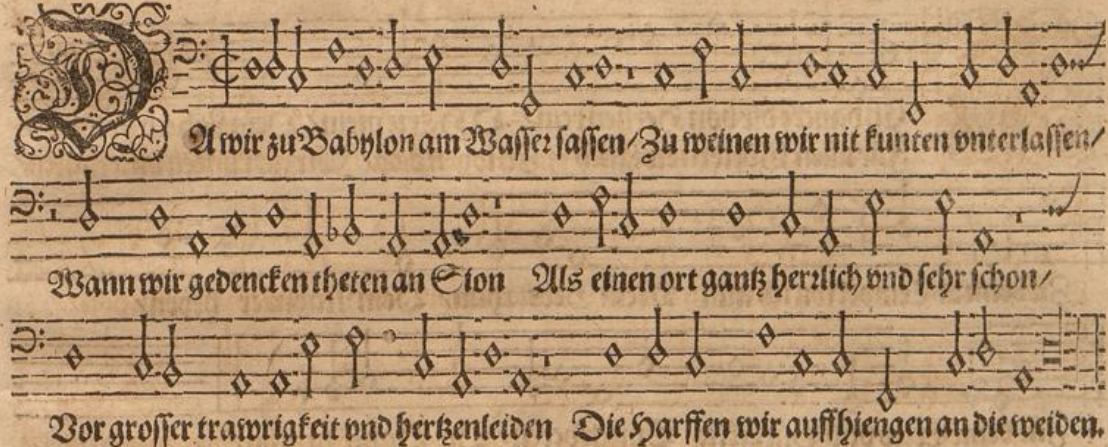 DA wir zu Babylon am Wasser sassen/ Zu weinen wir nit kunten vnterlassen/
Wann wir gedencken theten an Sion Als einen ort gantz herrlich vnd sehr schon/
Vor grosser trawrigkeit vnd hertzenleiden Die Harffen wir auffhiengen an die weiden.